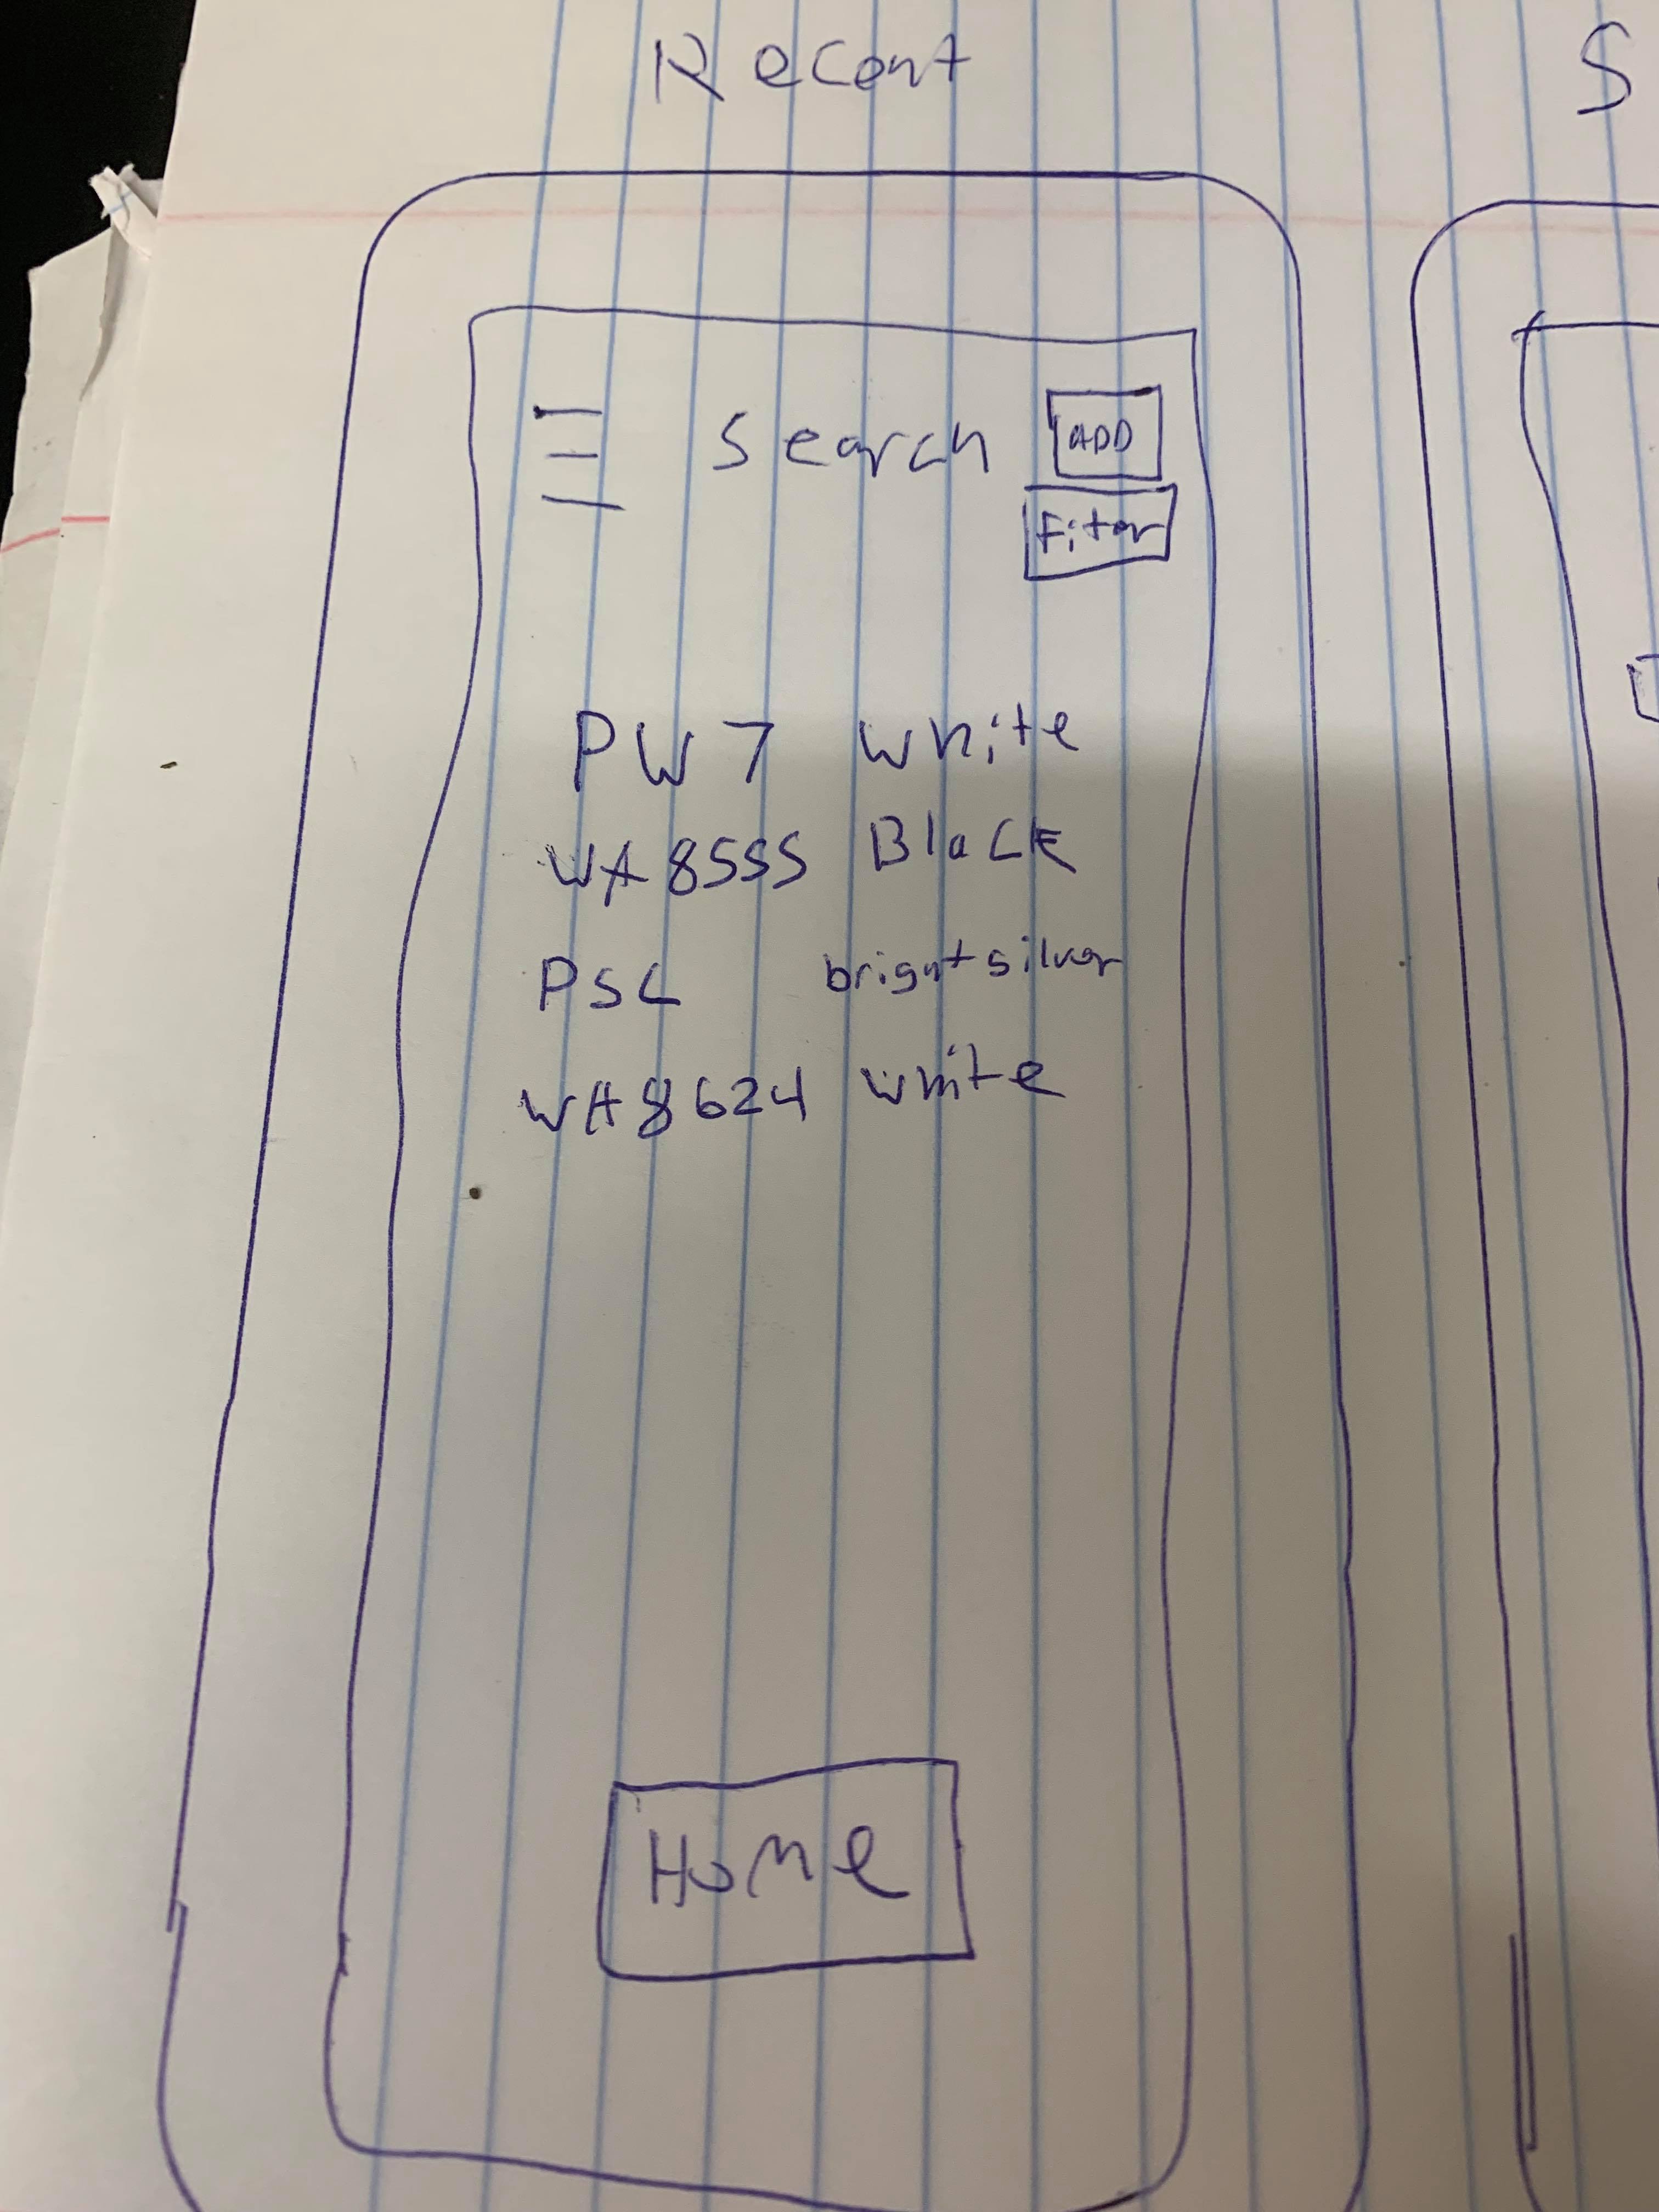 Recent
S
Search ADD
Fiter
PW7 white
WA8555 Black
PSC bright silver
WA8624 white
Home